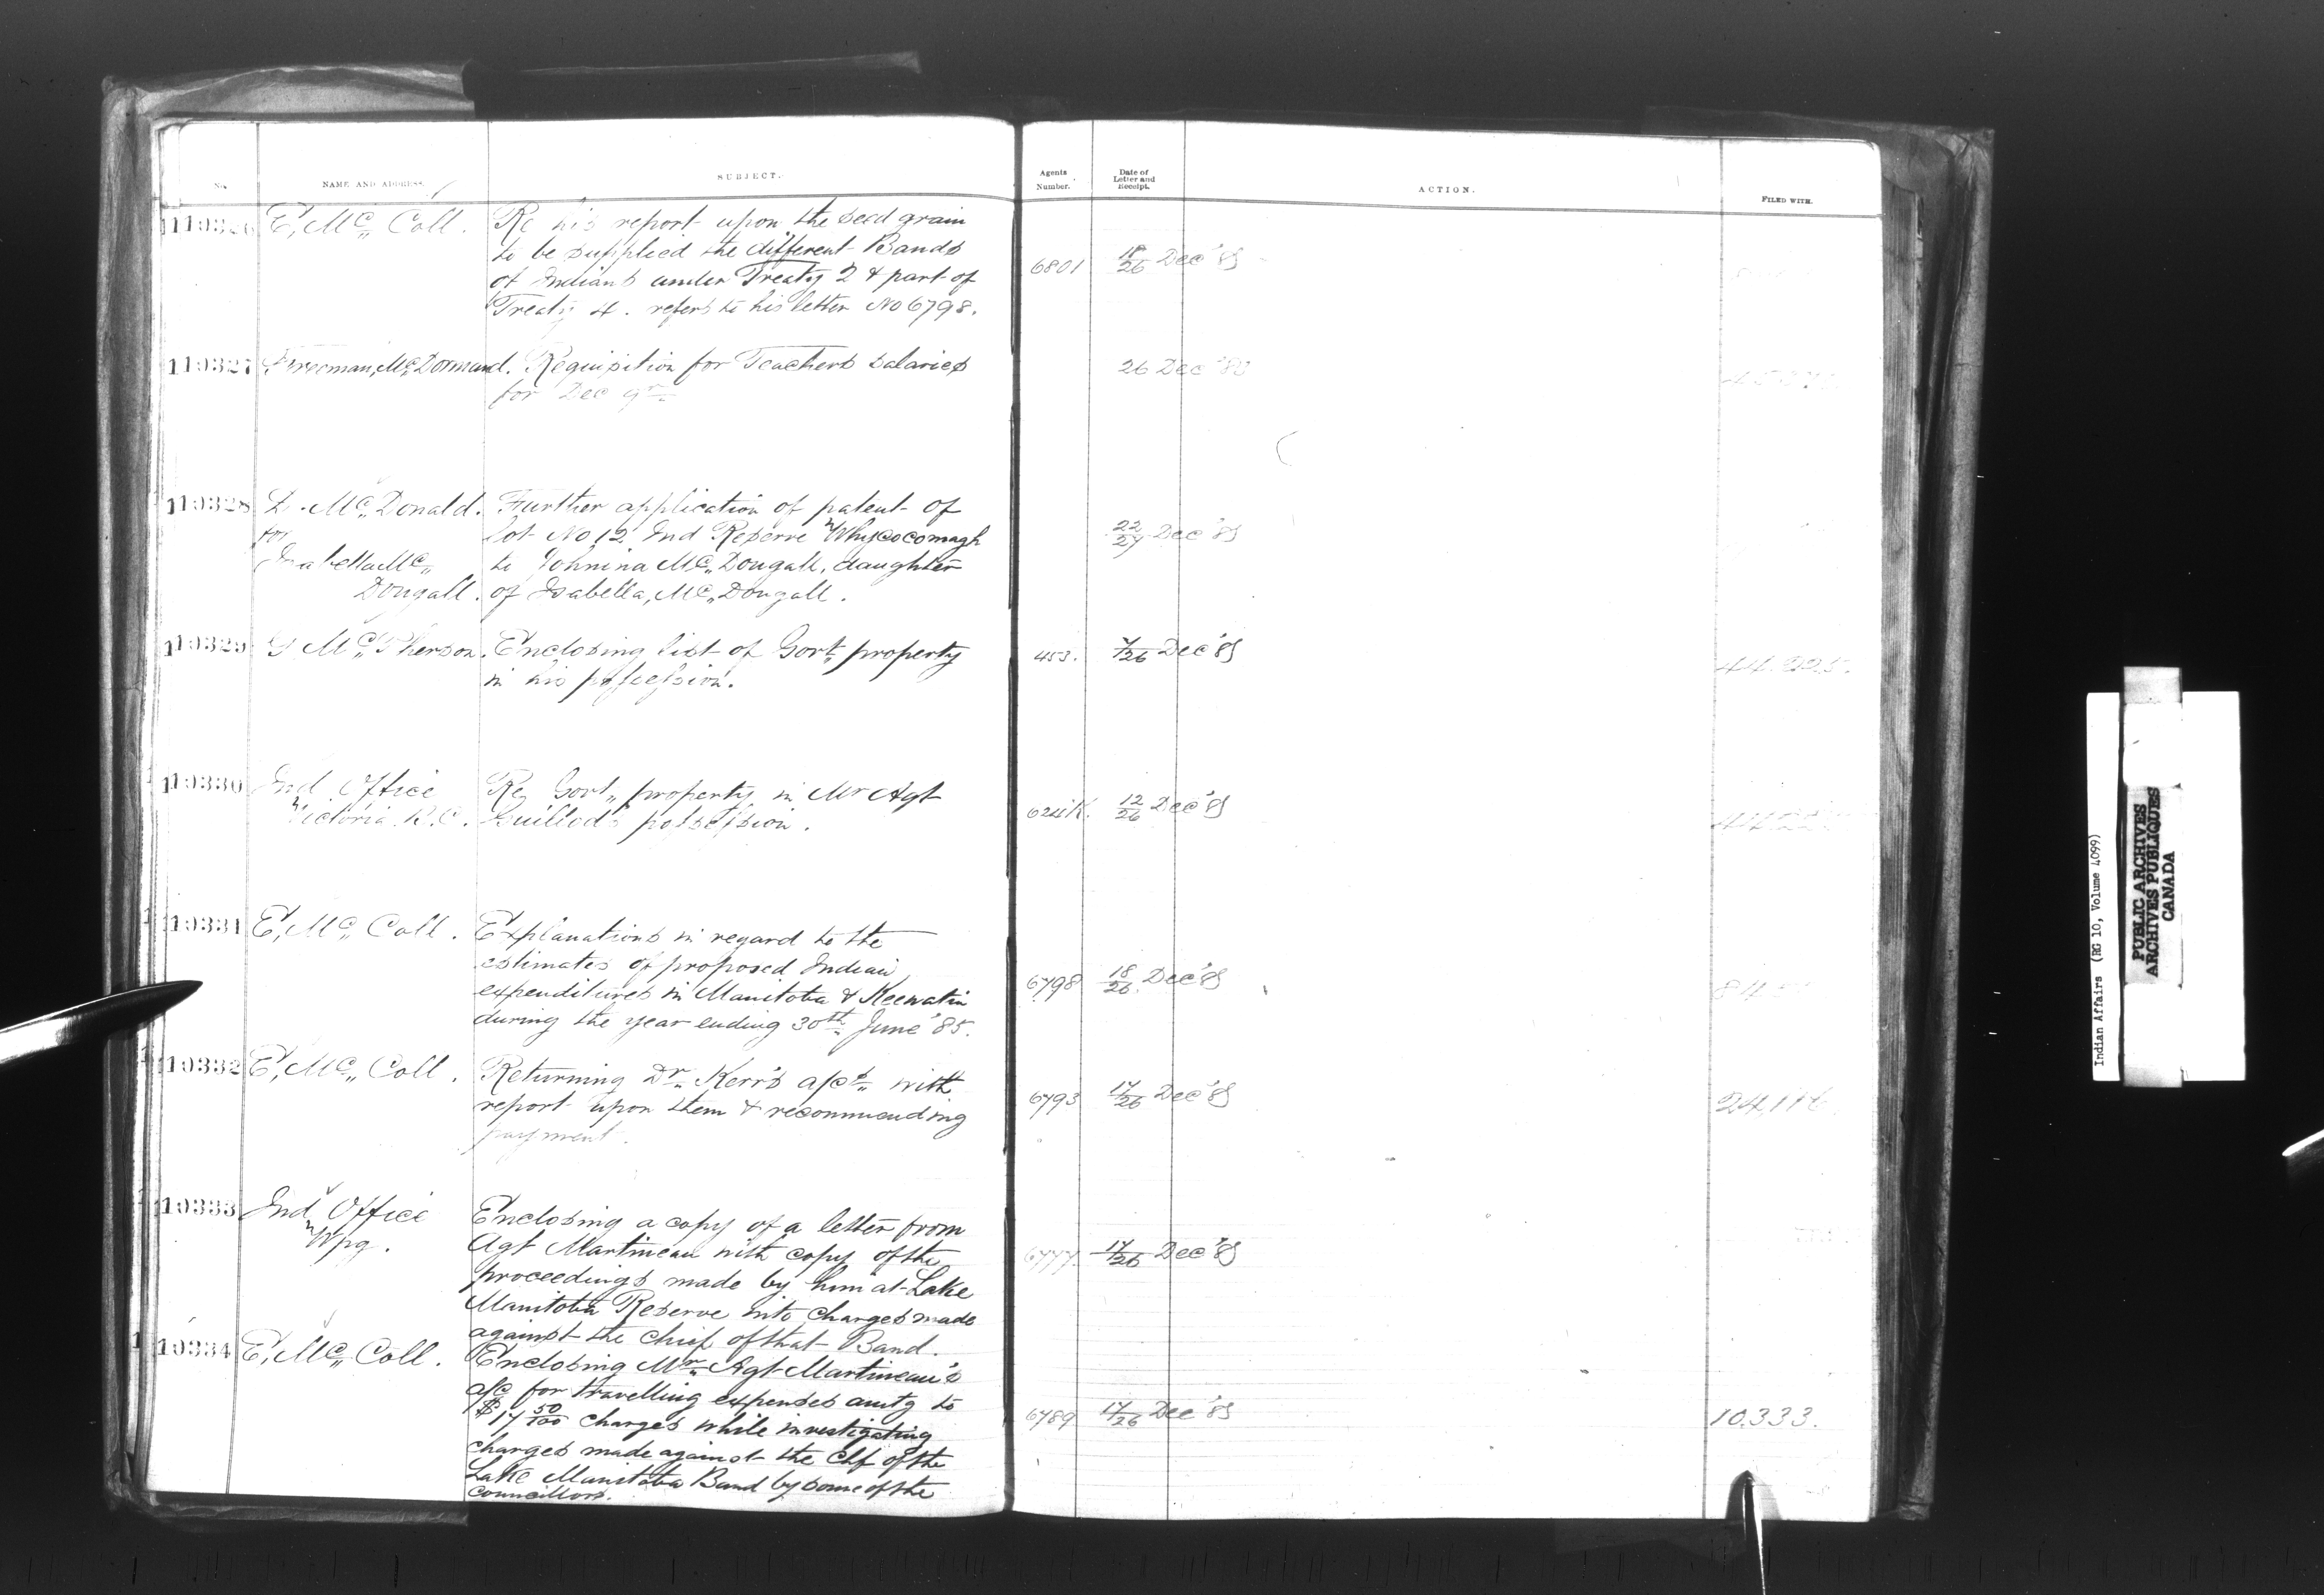 No.
NAME AND ADDRESS.
SUBJECT.
Agents
Number.
Date of
Letter and
Receipt.
ACTION.
FILED WITH.
110326 E, Mc Coll. Re his report upon the seed grain
to be supplied the different Bands
of Indians under Treaty 2 & part of
Treaty 4. refers to his letter No 6798.
6801 18/26 Dec '85
110327 Freeman, McDormand. Requisition for Teachers salaries
for Dec qr
26 Dec
110328 Mc Donald. Further application of patent of
for lot No 12 Ind Reserve Whycocomagh
Isabella Mc to Johnina Mc Dougall, daughter
Dougall. of Isabella, Mc Dougall.
22/27 Dec '85
110329 Mc Pherson. Enclosing list of Govt property
in his possession.
453. 7/26 Dec '85
110330 Ind Office Re Govt property in Mr Agt
Victoria B.C. Guillod's possession.
624K. 12/26 Dec '85
110331 E, Mc Coll. Explanations in regard to the
estimates of proposed Indian
expenditures in Manitoba & Keewatin
during the year ending 30th June '85.
6798 18/26 Dec '85
110332 E, Mc Coll. Returning Dr Kerr's a/cs with
report upon them & recommending
payment.
6793 17/26 Dec '85 24,116
110333 Ind Office Enclosing a copy of a letter from
Wpg. Agt Martineau with copy of the
proceedings made by him at Lake
Manitoba Reserve into charges made
against the chief of that Band.
6777 17/26 Dec '85
110334 E, Mc Coll. Enclosing Mr Agt Martineau's
a/c for travelling expenses amtg to
$17 50/100 charges while investigating
charges made against the Chf of the
Lake Manitoba Band by some of the
councillors.
6789 17/26 Dec '85 10.333.
Indian Affairs (RG 10, Volume 4099)
PUBLIC ARCHIVES
ARCHIVES PUBLIQUES
CANADA